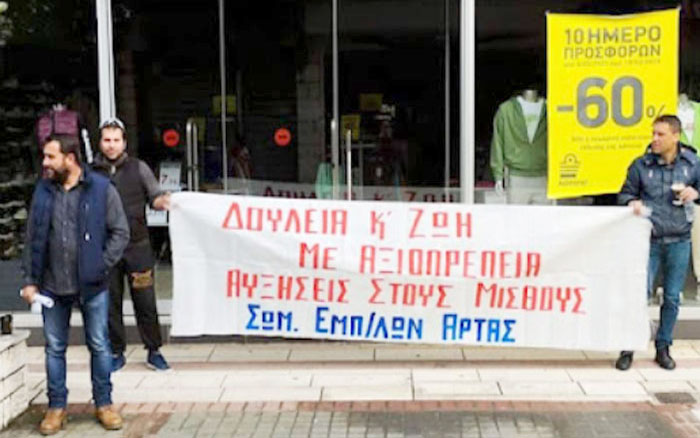 10ΗΜΕΡΟ
ΠΡΟΣΦΟΡΩΝ
-60%
ΔΟΥΛΕΙΑ Κ' ΖΩΗ
ΜΕ ΑΞΙΟΠΡΕΠΕΙΑ
ΑΥΞΗΣΕΙΣ ΣΤΟΥΣ ΜΙΣΘΟΥΣ
ΣΩΜ. ΕΜΠ/ΛΩΝ ΑΡΤΑΣ